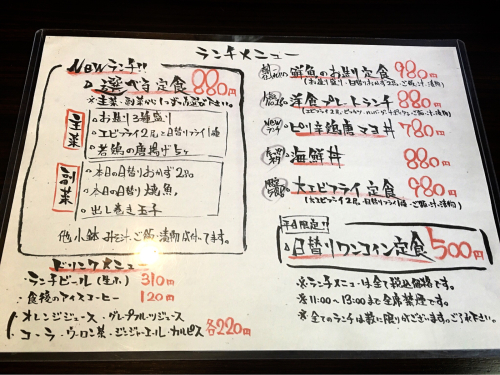 ランチメニュー
NEWランチ!!
選べる定食 880円
※主菜・副菜から1つずつお選び下さい。
主菜
・お造り3種盛り
・エビフライ2尾と日替りフライ1種
・若鶏の唐揚げ5ヶ
副菜
・本日の日替りおかず2品
・本日の日替り焼魚
・出し巻き玉子
他小鉢 みそ汁・ご飯・漬物 付いてます。
ドリンクメニュー
・ランチビール(生小) 310円
・食後のアイスコーヒー 120円
オレンジジュース・グレープフルーツジュース
コーラ・ウーロン茶・ジンジャーエール・カルピス 各220円
鮮魚のお造り定食 980円
洋食プレートランチ 880円
NEW ランチ
ピリ辛鶏唐マヨ丼 780円
海鮮丼 880円
大エビフライ定食 980円
(大エビフライ2尾・日替りフライ1種・ご飯・汁・漬物)
平日限定!!
日替りワンコイン定食 500円
※ランチメニューは全て税込価格です。
※11:00〜13:00まで全席禁煙です。
※全てのランチは数に限りがございます。ご了承下さい。